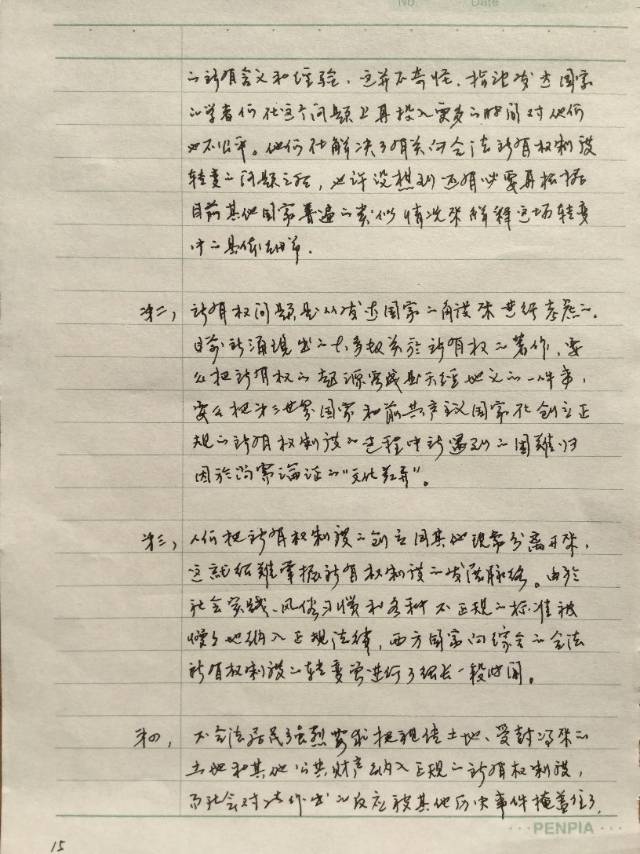 No.    Date
的所有含义和经验，这并不奇怪。指望发达国家
的学者们在这个问题上再投入更多的时间对他们
也不公平。他们在解决了有关向合法所有权制度
转变的问题之后，也许没想到还有必要再根据
目前其他国家普遍的类似情况来解释这场转变
中的具体细节。
第二，所有权问题是从发达国家的角度来进行考虑的。
目前所涌现出的大多数关於所有权的著作，要
么把所有权的起源实践看成天经地义的一件事，
要么把第三世界国家和前共产主义国家在创立正
规的所有权制度的过程中所遇到的困难归
因於的“文化差异”。
第三，人们把所有权制度的创立同其他现象分离开来，
这就很难掌握所有权制度的发展脉络。由於
社会实践、风俗习惯和各种不正规的标准被
慢慢地纳入正规法律，西方国家向综合的合法
所有权制度的转变要进行了很长一段时间。
第四，不合法居民强烈要求把租佃土地、受封得来的
土地和其他公共财产纳入正规的所有权制度，
而社会对此作出的反应被其他历史事件掩盖住了，
15
PENPIA